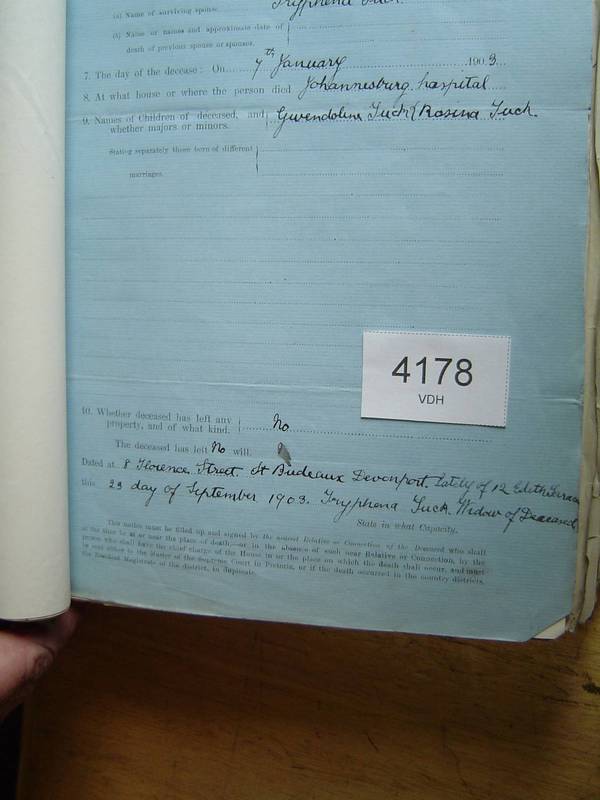 (a) Name of surviving spouse. Tryphena Tuck.
(b) Name or names and approximate date of
death of previous spouse or spouses.
7. The day of the decease: On 7th January 1903
8. At what house or where the person died Johannesburg hospital
9. Names of Children of deceased, and
whether majors or minors. Gwendoline Tuck & Rosina Tuck.
Stating separately those born of different
marriages.
4178
VDH
10. Whether deceased has left any
property, and of what kind. No
The deceased has left No will.
Dated at 8 Florence Street. St Budeaux Devonport. Lately of 12 Edith Terrace
this 23 day of September 1903. Tryphena Tuck. Widow of Deceased
State in what Capacity.
This notice must be filled up and signed by the nearest Relative or Connection of the Deceased who shall
at the time be at or near the place of death,—or in the absence of such near Relative or Connection, by the
person who shall have the chief charge of the House in or the place on which the death shall occur, and must
be sent either to the Master of the Supreme Court in Pretoria, or if the death occurred in the country districts,
the Resident Magistrate of the district, in duplicate.